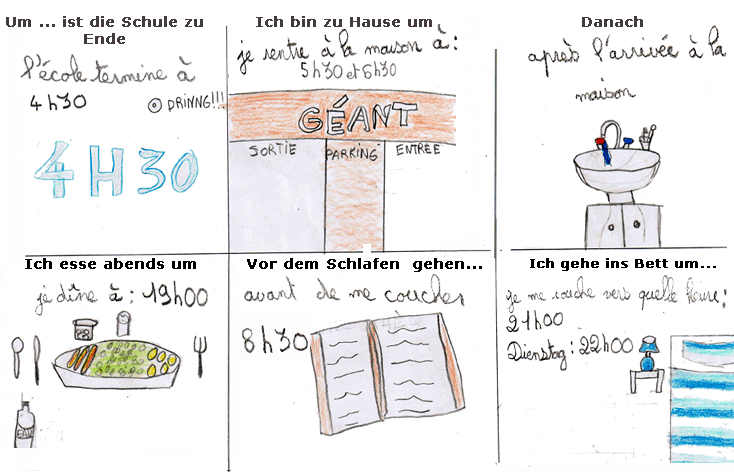 Um ... ist die Schule zu
Ende
l'école termine à
4h30
DRINNG!!!
4H30
Ich bin zu Hause um
je rentre à la maison à :
5h30 et 6h30
GÉANT
SORTIE
PARKING
ENTREE
Danach
après l'arrivée à la
maison
Ich esse abends um
je dîne à : 19h00
EAU
Vor dem Schlafen gehen...
avant de me coucher
8h30
Ich gehe ins Bett um...
je me couche vers quelle heure :
21h00
Dienstag : 22h00